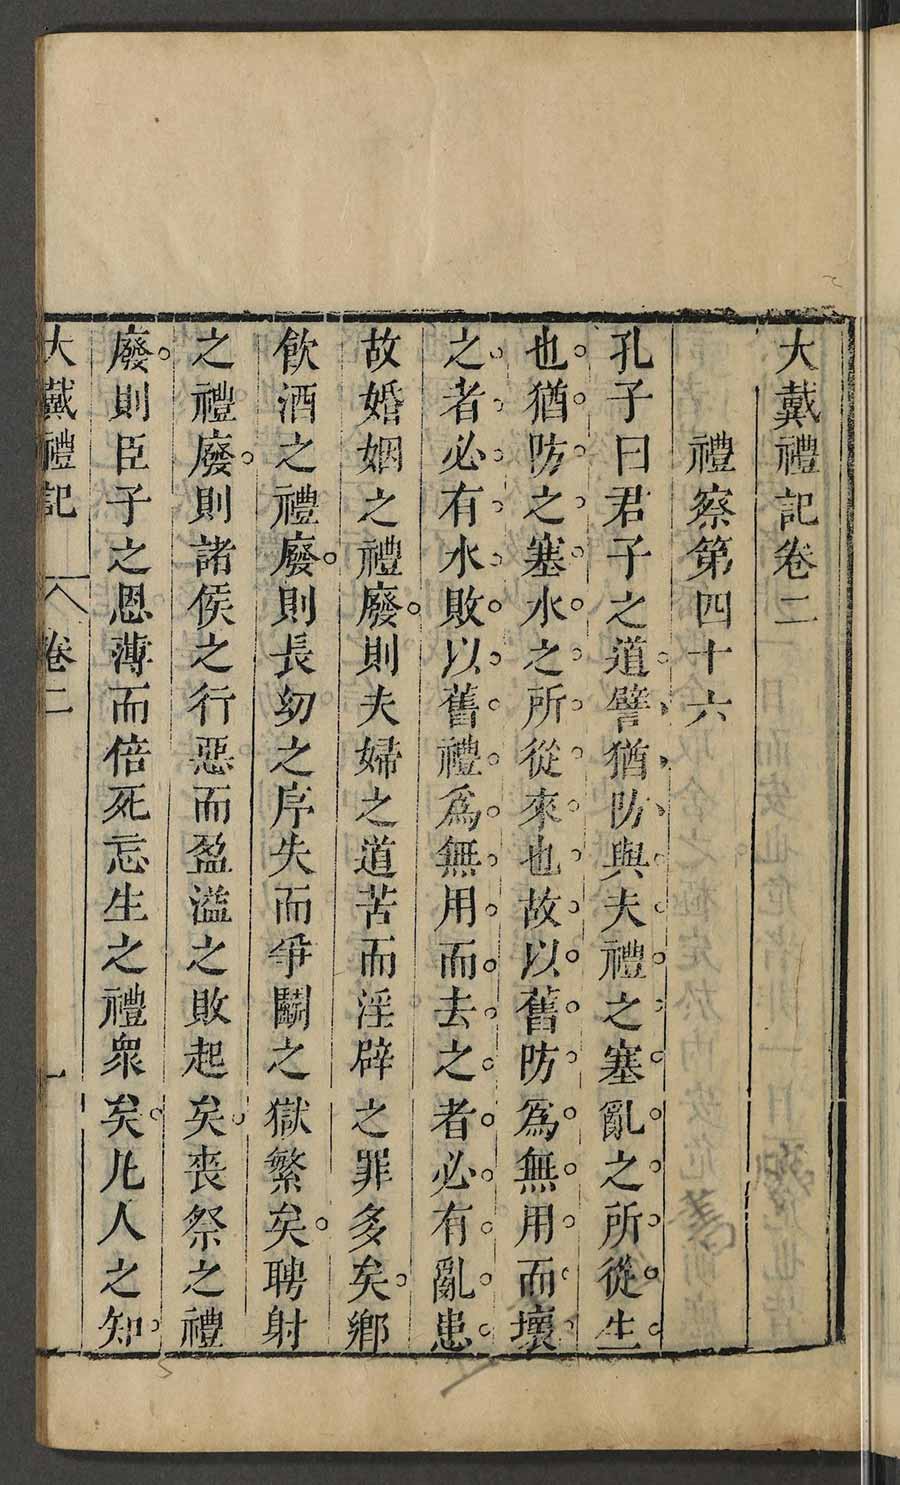 大戴禮記卷二
禮察第四十六
孔子曰君子之道譬猶防與夫禮之塞亂之所從生
也猶防之塞水之所從來也故以舊防爲無用而壞
之者必有水敗以舊禮爲無用而去之者必有亂患
故婚姻之禮廢則夫婦之道苦而淫辟之罪多矣鄉
飲酒之禮廢則長幼之序失而爭鬭之獄繁矣聘射
之禮廢則諸侯之行惡而盈溢之敗起矣喪祭之禮
廢則臣子之恩薄而倍死忘生之禮衆矣凡人之知
大戴禮記 卷二 一